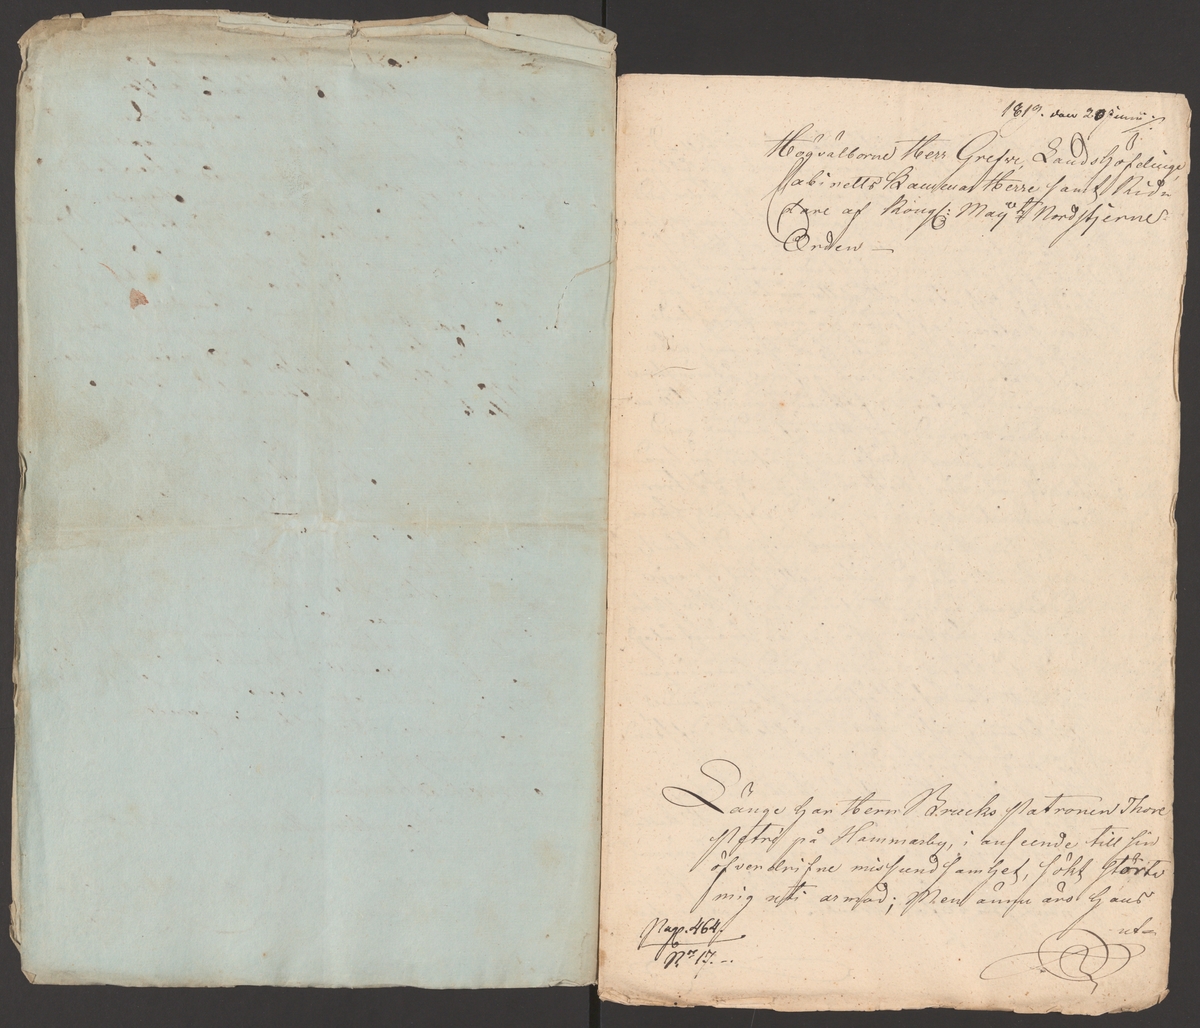 1819. den 29 Junii
Högvälborne Herr Grefve, Landshöfdinge,
Cabinetts Kammar Herre samt Ridd
tare af Kongl: Maj:ts Nordstjerne
Orden —
Länge har Herr Bruks Patronen Thore
Petré på Hammarby, i anseende till sin
öfverdrifne missundsamhet, sökt störta
mig uti armod; Men ännu äro hans
ut-
Pag. 464.
Nr 17. --